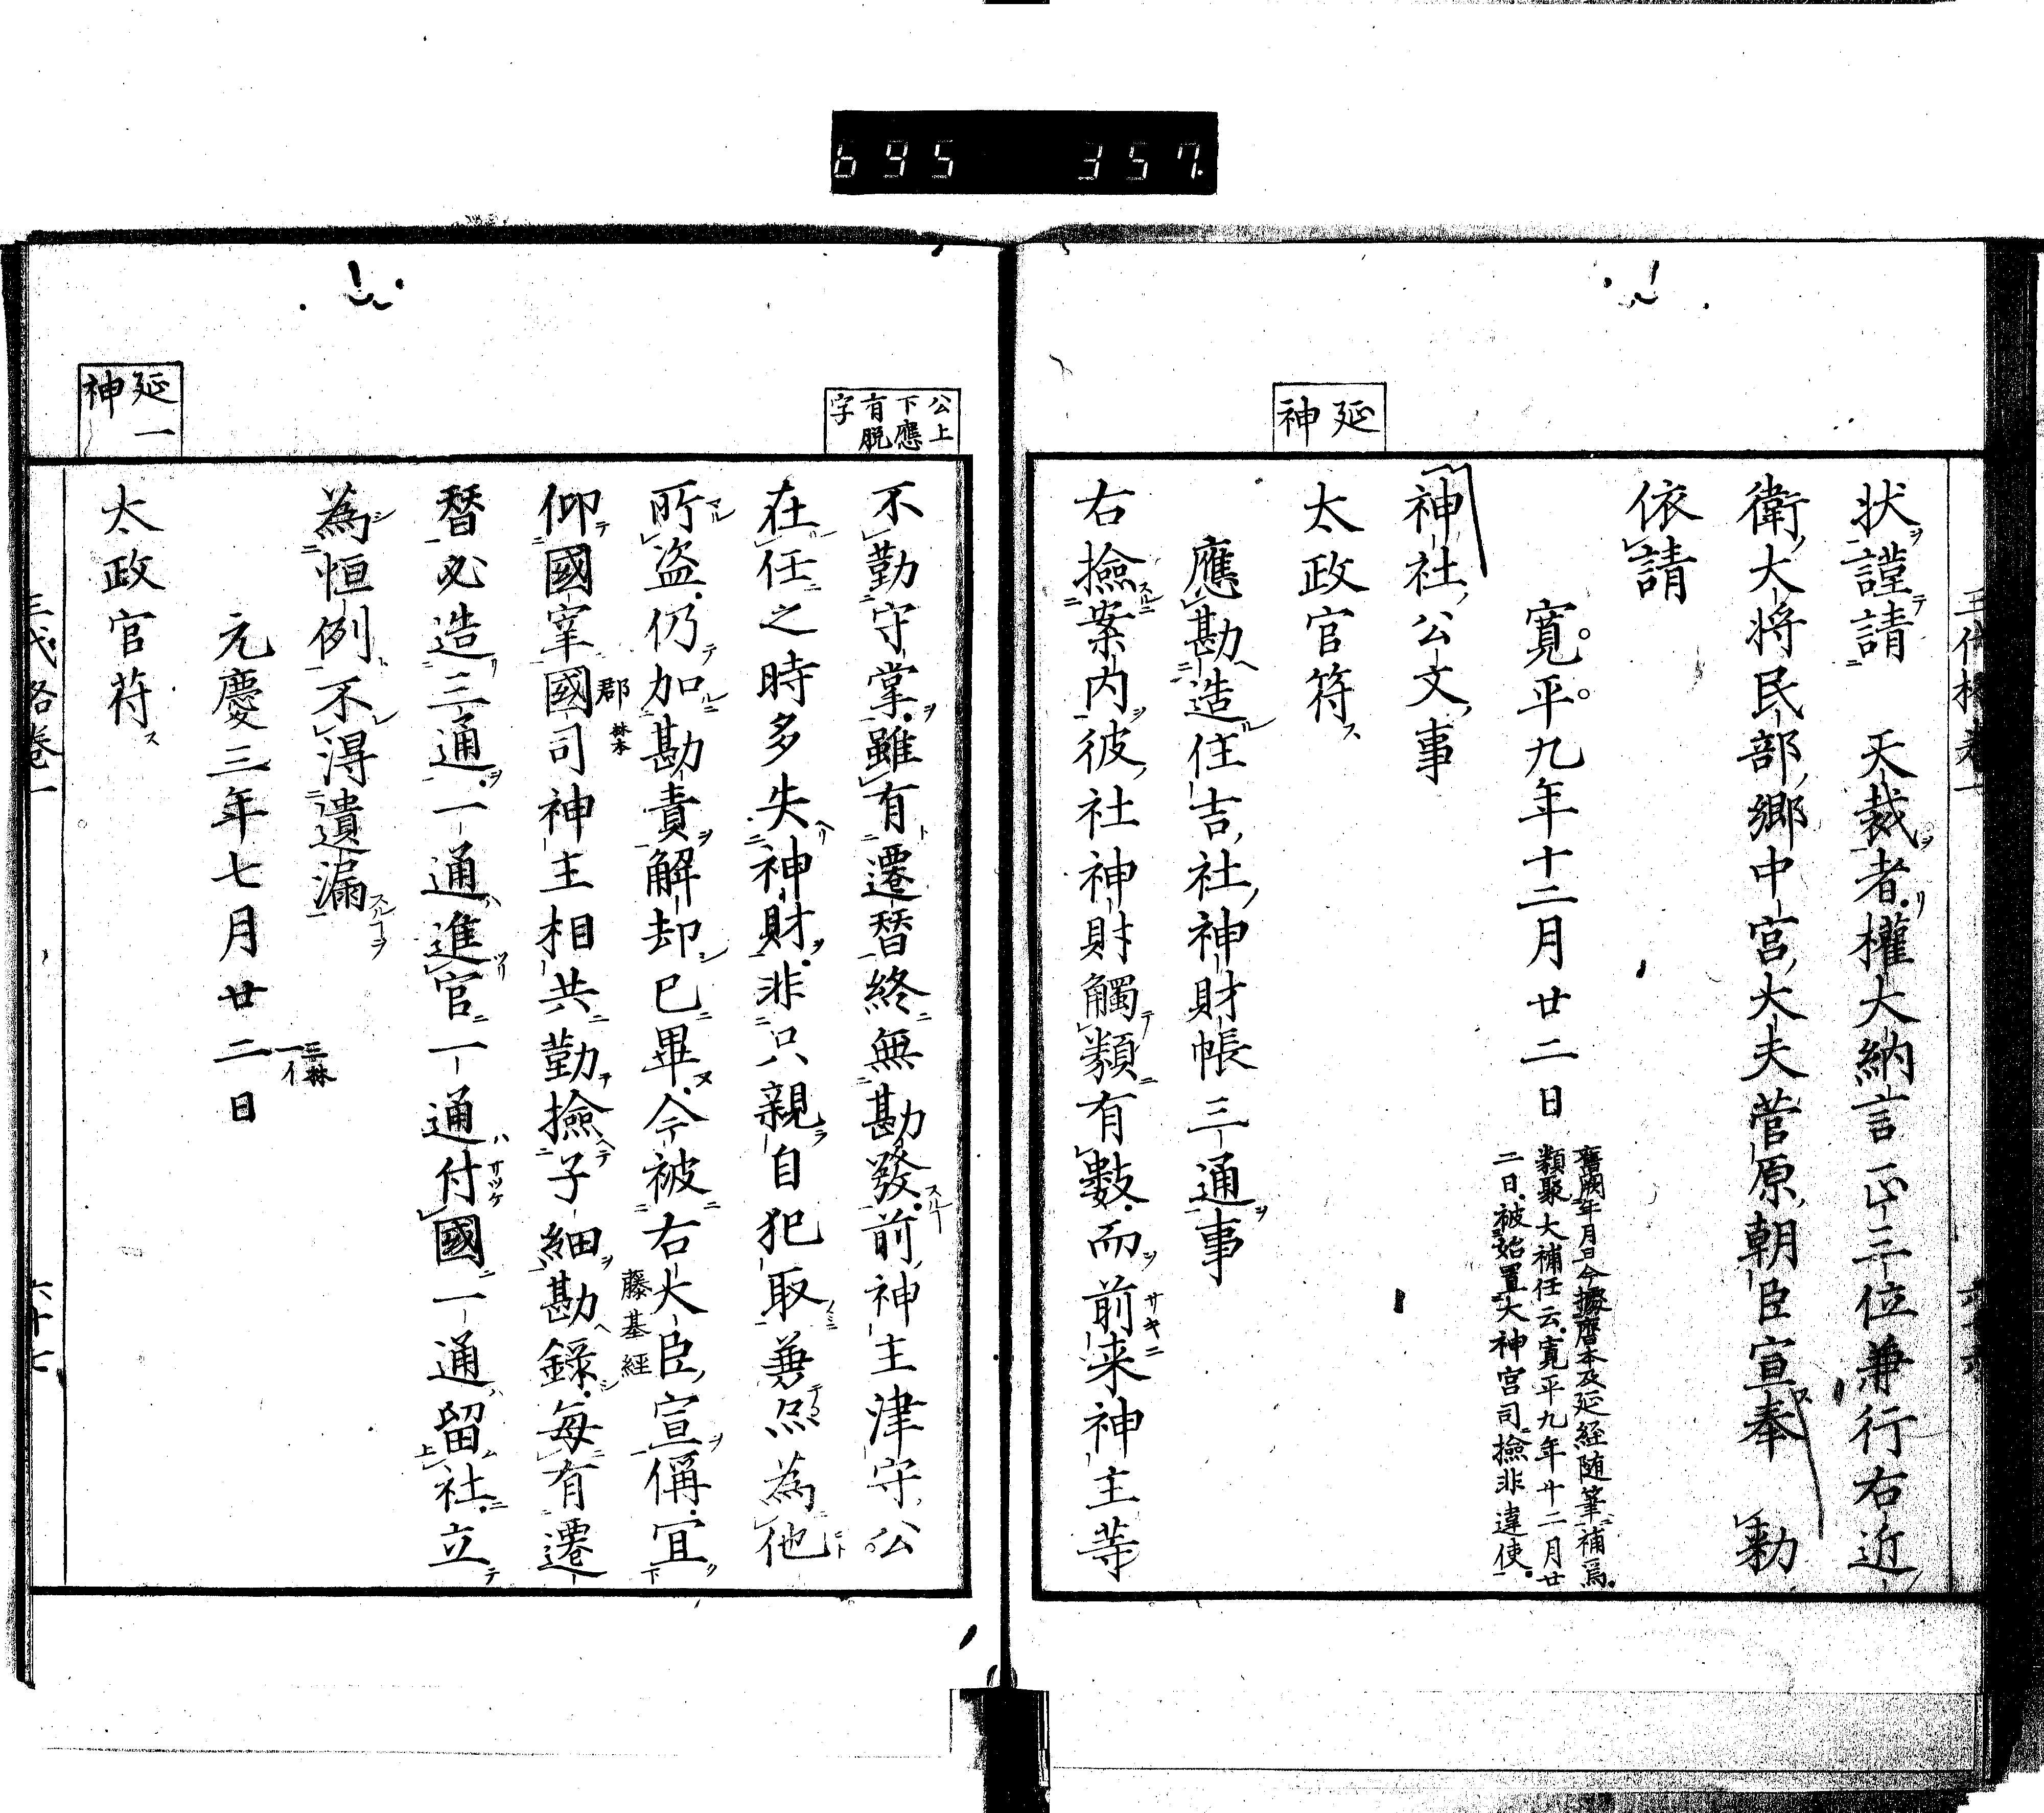 695 357
延神
状謹請 天裁者權大納言正三位兼行右近
衛大将民部郷中宮大夫菅原朝臣宣奉 勅
依請
寛平九年十二月廿二日
舊闕年月日今據暦本及延経随筆補焉
類聚大補任云寛平九年十二月廿
二日被始置大神宮司撿非違使
神社公文事
太政官符
應勘造住吉社神財帳三通事
右撿案内彼社神財觸類有數而前来神主等
公上
下應
有脱
字
不勤守掌雖有遷替終無勘發前神主津守公
在任之時多失神財非只親自犯取兼亦為他
所盗仍加勘責解却已畢今被右大臣宣偁宜
藤基経
仰國宰國司神主相共勤撿子細勘録毎有遷
郡林本
替必造三通一通進官一通付國一通留社立
為恒例不得遺漏
元慶三年七月廿二日
三林
一イ
延一
神
太政官符
三代格巻一 六十七